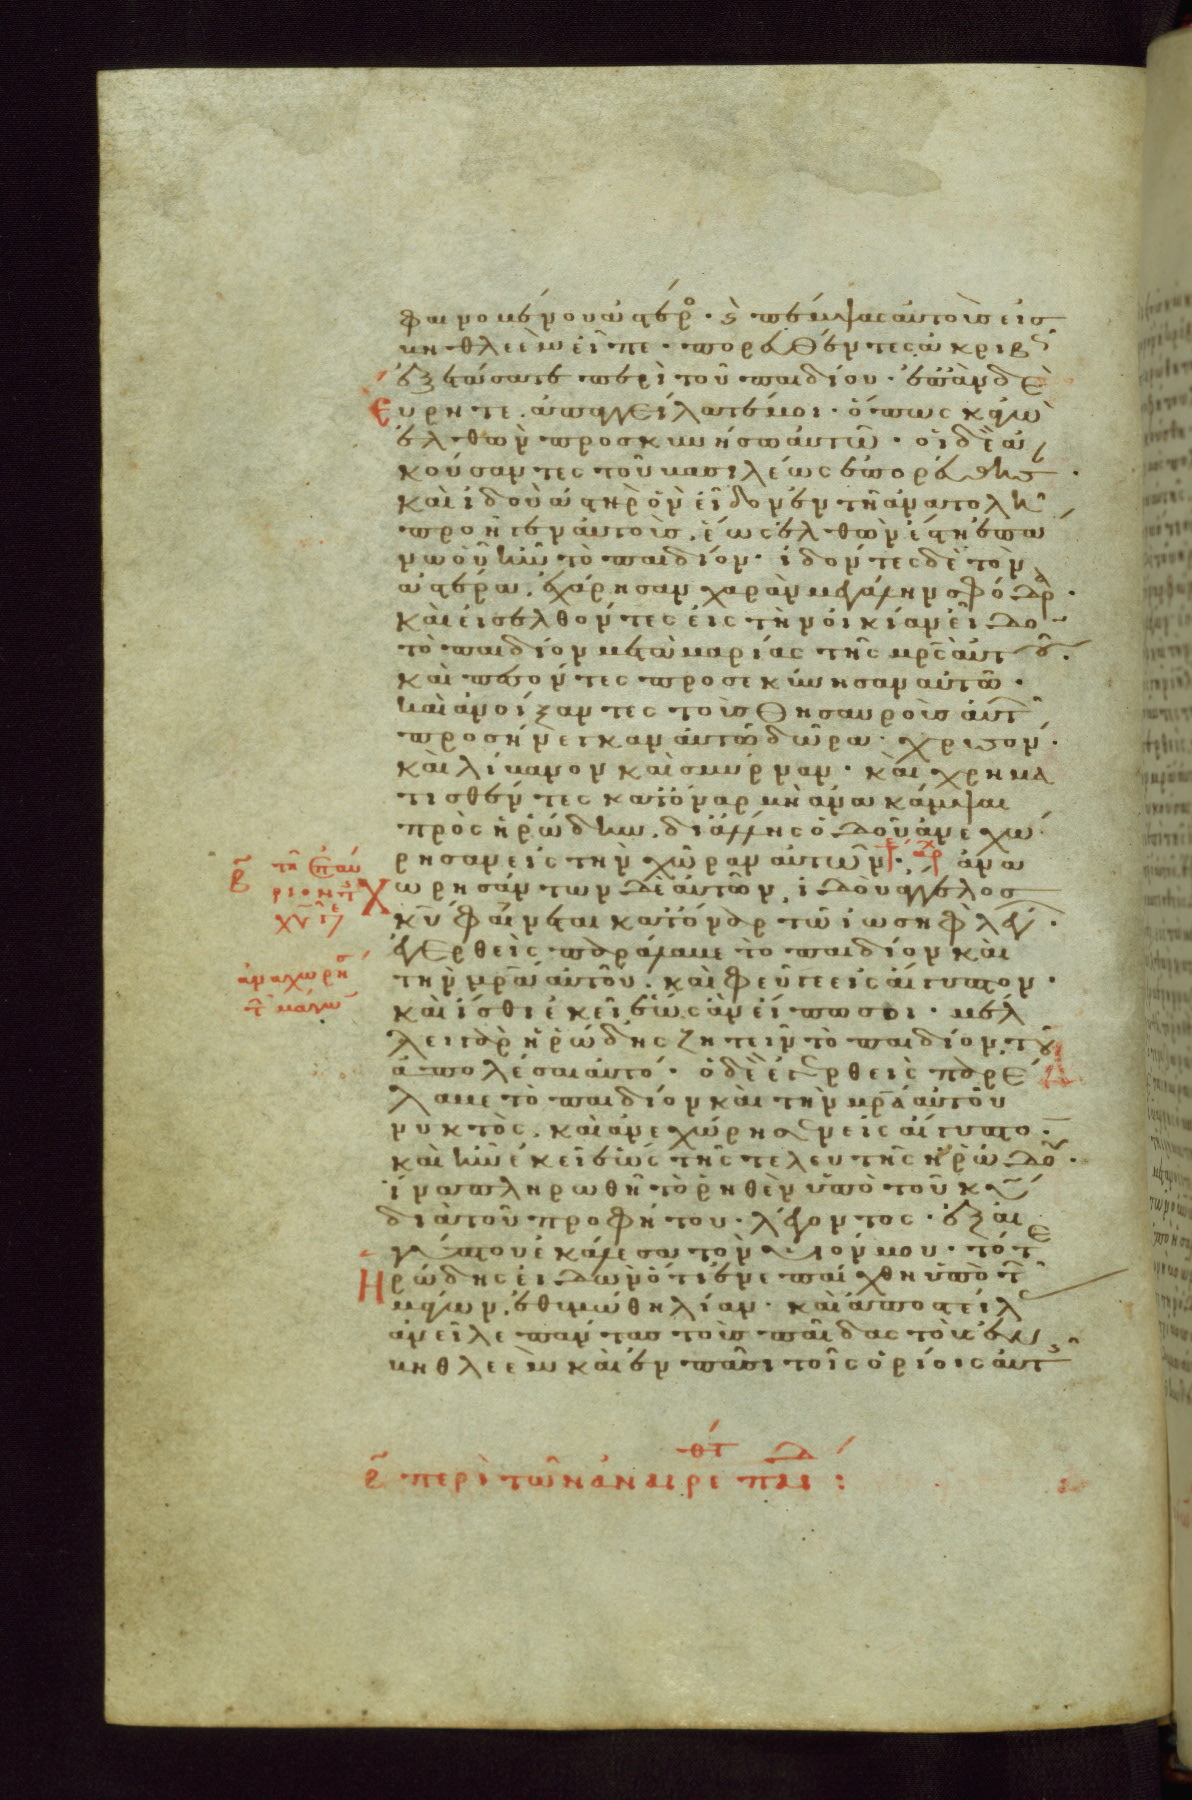 φαινομένου ἀστέρο· καὶ πέμψας αὐτοὺς εἰς
βηθλεὲμ εἶπε· πορευθέντες ἀκριβῶς
ἐξετάσατε περὶ τοῦ παιδίου· ἐπὰν δὲ
εὕρητε· ἀπαγγείλατέ μοι· ὅπως κἀγὼ
ἐλθὼν προσκυνήσω αὐτῶ· οἱ δὲ ἀ
κούσαντες τοῦ βασιλέως ἐπορεύθησ·
καὶ ἰδοὺ ὁ ἀστὴρ ὃν εἶδον ἐν τῆ ἀνατολῆ
προῆγεν αὐτούς, ἕως ἐλθὼν ἔστη ἐπά
νω οὗ ἦν τὸ παιδίον· ἰδόντες δὲ τὸν
ἀστέρα, ἐχάρησαν χαρὰν μεγάλην σφόδρ·
καὶ εἰσελθόντες εἰς τὴν οἰκίαν εἶδο
τὸ παιδίον μετὰ μαρίας τῆς μρς αὐτοῦ·
καὶ πεσόντες προσεκύνησαν αὐτῶ·
καὶ ἀνοίξαντες τοὺς θησαυροὺς αὐτ
προσήνεγκαν αὐτῶ δῶρα· χρυσόν·
καὶ λίβανον καὶ σμύρναν· καὶ χρημα
τισθέντες κατ' ὄναρ μὴ ἀνακάμψαι
πρὸς ἡρώδην, δι' ἄλλης ὁδοῦ ἀνεχώ
ρησαν εἰς τὴν χώραν αὐτῶν· ἀρχ ἀνα
χωρησάντων δὲ αὐτῶν, ἰδοὺ ἄγγελος
κυ φαίνεται κατ' ὄναρ τῶ ἰωσὴφ λέγ·
ἐγερθεὶς παράλαβε τὸ παιδίον καὶ
τὴν μρα αὐτοῦ· καὶ φεῦγε εἰς αἴγυπτον·
καὶ ἴσθι ἐκεῖ ἕως ἂν εἴπω σοι· μέλ
λει γὰρ ἡρώδης ζητεῖν τὸ παιδίον, τοῦ
ἀπολέσαι αὐτό· ὁ δὲ ἐγερθεὶς παρέ
λαβε τὸ παιδίον καὶ τὴν μρα αὐτοῦ
νυκτὸς, καὶ ἀνεχώρησεν εἰς αἴγυπτο·
καὶ ἦν ἐκεῖ ἕως τῆς τελευτῆς ἡρώδου·
ἵνα πληρωθῆ τὸ ῥηθὲν ὑπὸ τοῦ κυ
διὰ τοῦ προφήτου· λέγοντος· ἐξ αἰ
γύπτου ἐκάλεσα τὸν υἱόν μου· τότε
ἡρώδης ἰδὼν ὅτι ἐνεπαίχθη ὑπὸ τ
μάγων, ἐθυμώθη λίαν· καὶ ἀποστείλ
ἀνεῖλε πάντας τοὺς παῖδας τοὺς ἐν
βηθλεὲμ καὶ ἐν πᾶσι τοῖς ὁρίοις αὐτ
τῆ ἐπαύ
ριον τ
χυ γε
ἀναχωρησ
τ μάγω
περὶ τῶν ἀναιρεθέτ παιδ: